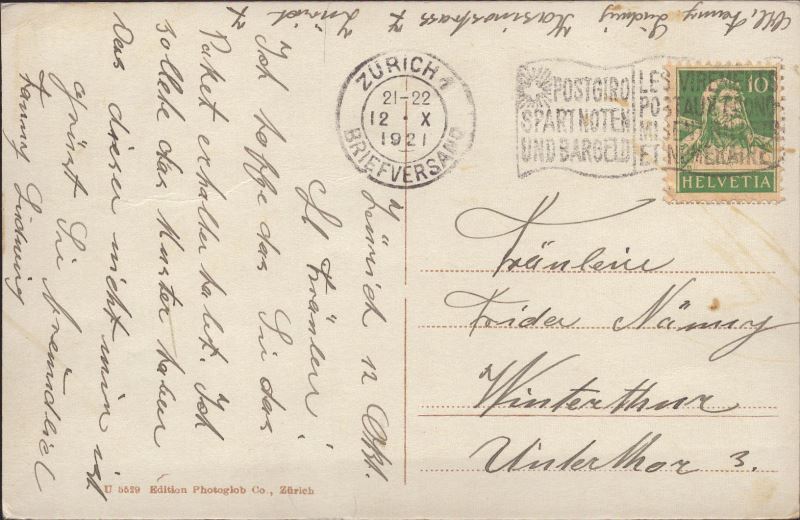 Zürich 12 Okt.
Fränlein
Ich hoffe das Sie das
Paket erhalten habt. Ich
sollte das Muster haben
Das dieser nicht mein ist
grüsst Sie freundlich
Fanny Ludwig
Fanny Ludwig
Zürich 7
ZÜRICH 1
21-22
12 · X
1921
BRIEFVERSAND
POSTGIRO
SPART NOTEN
UND BARGELD
LES VIREMENTS
POSTAUX
ET NUMÉRAIRE
10
HELVETIA
Fräulein
Frider
Winterthur
Unterthor 3.
U 5529 Edition Photoglob Co., Zürich